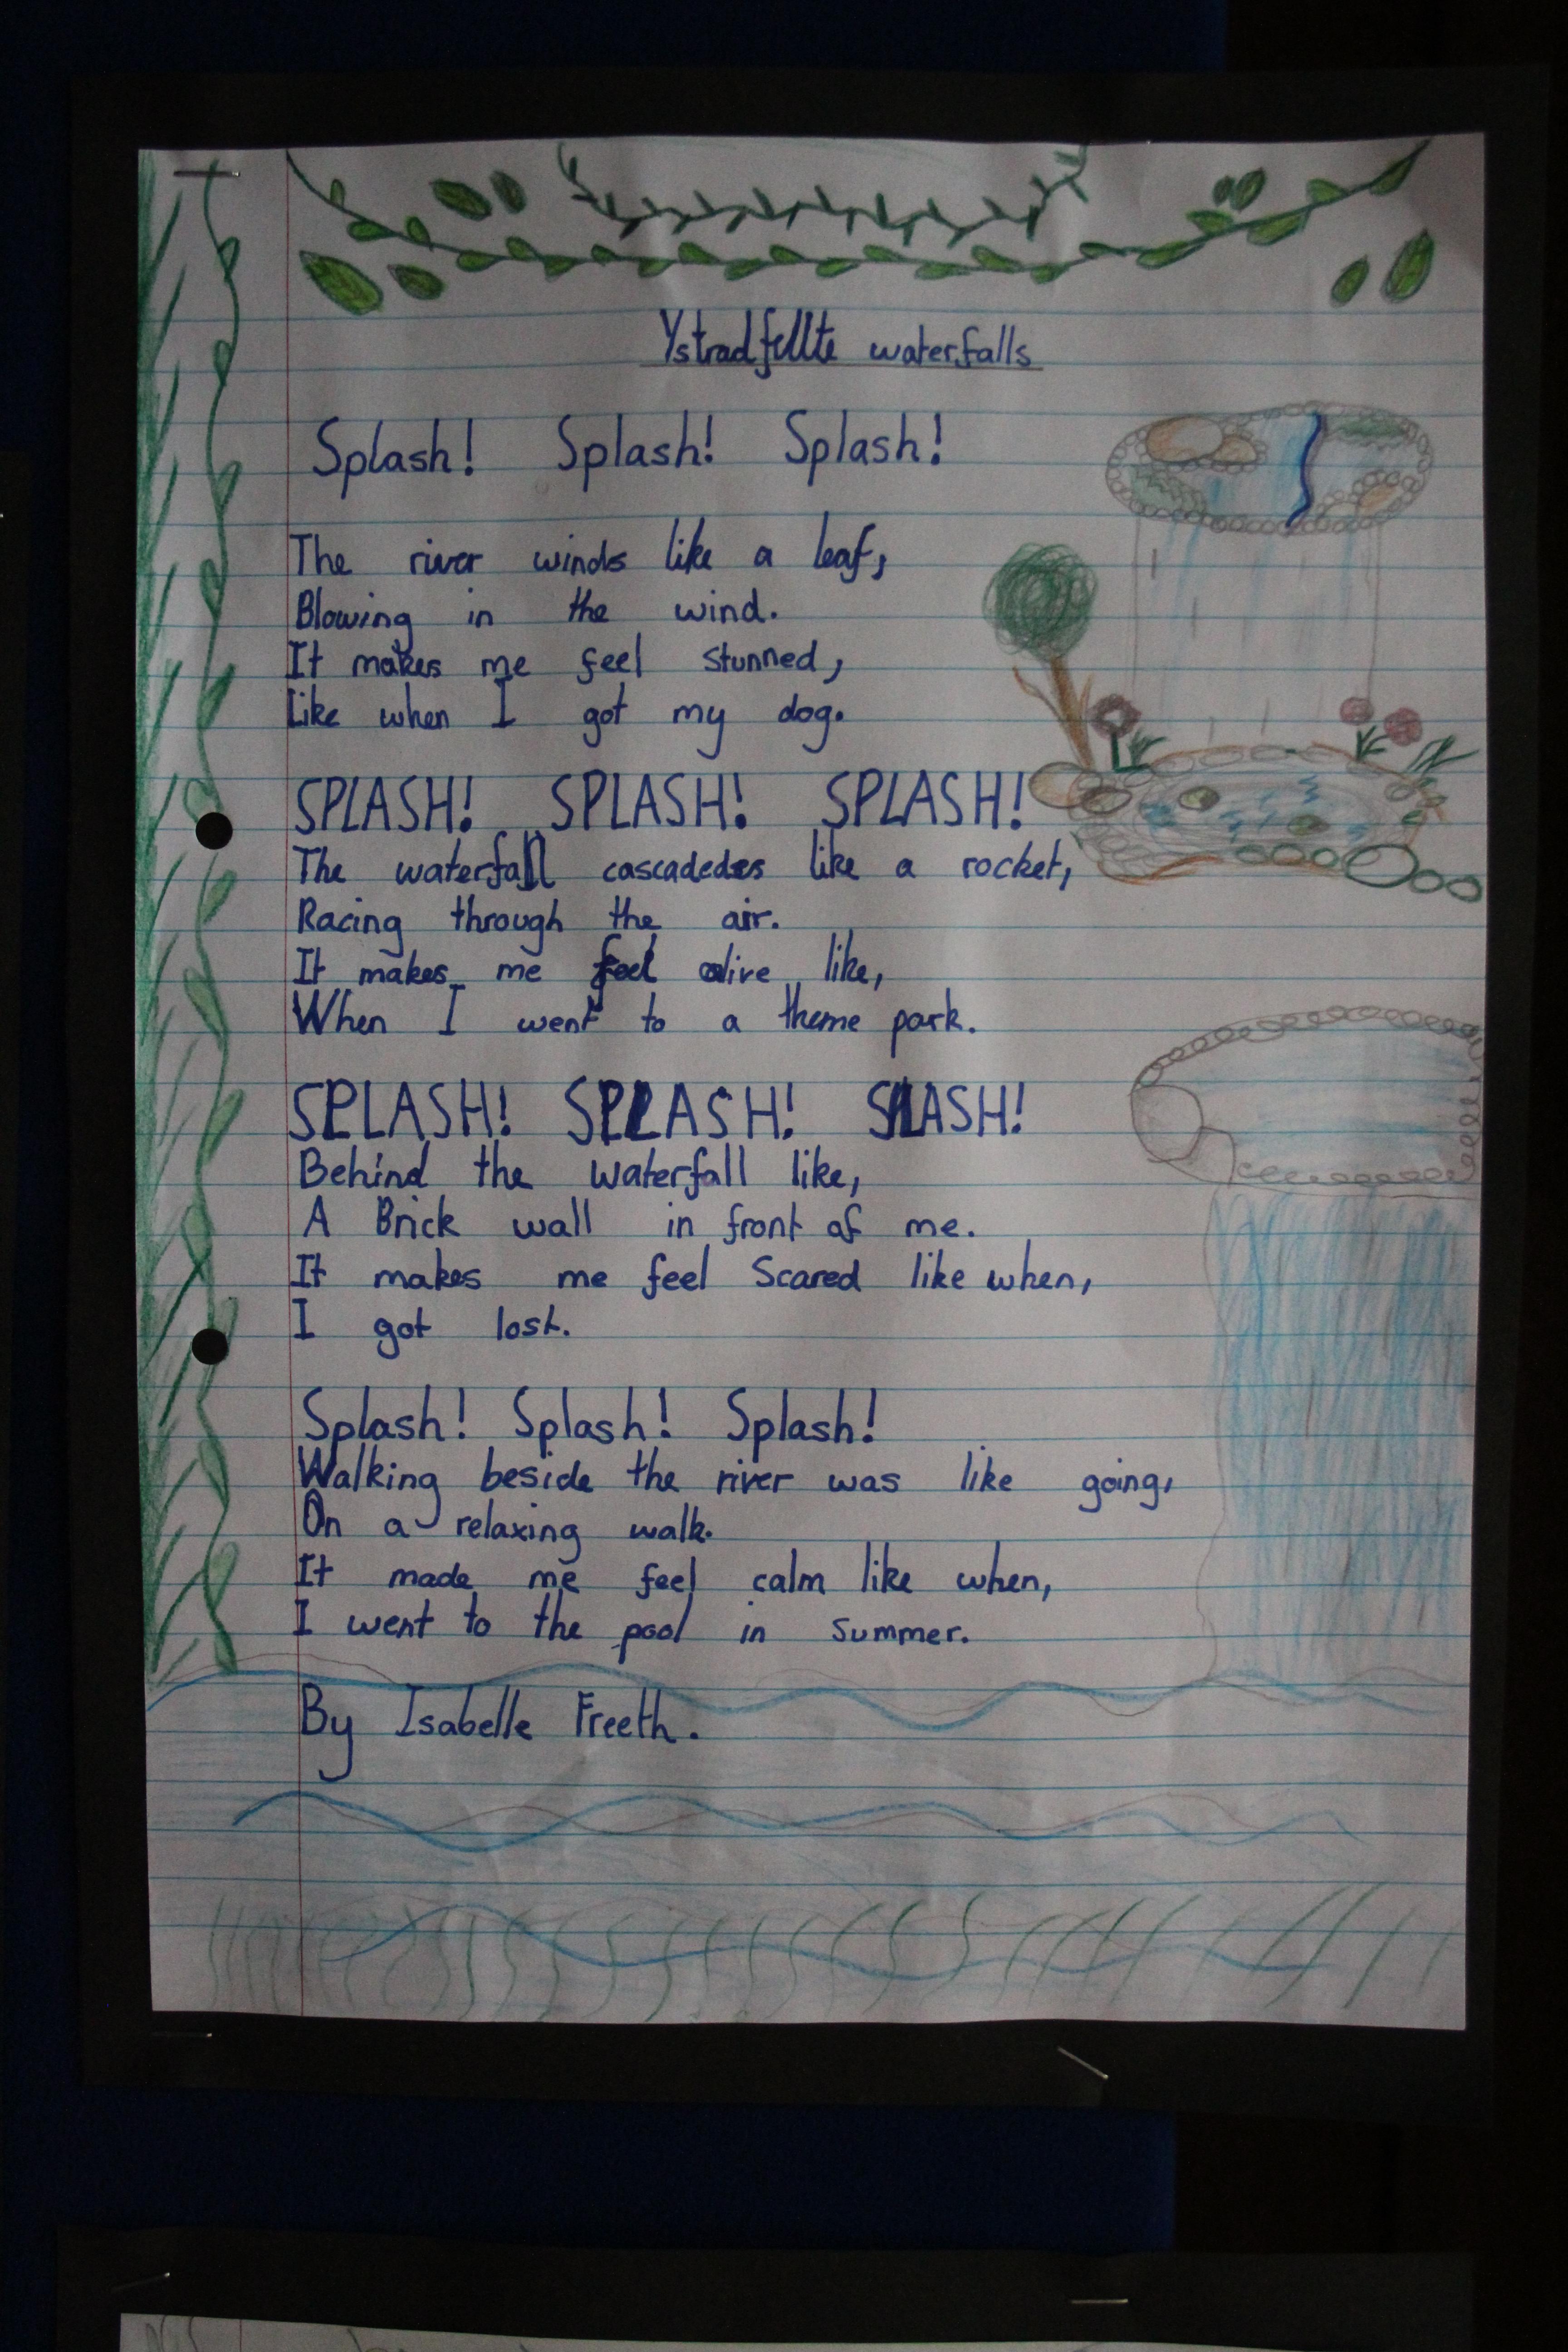 Ystradfellte waterfalls
Splash! Splash! Splash!
The river winds like a leaf,
Blowing in the wind.
It makes me feel stunned,
Like when I got my dog.
SPLASH! SPLASH! SPLASH!
The waterfall cascadedes like a rocket,
Racing through the air.
It makes me feel alive like,
When I went to a theme park.
SPLASH! SPLASH! SPLASH!
Behind the waterfall like,
A Brick wall in front of me.
It makes me feel Scared like when,
I got lost.
Splash! Splash! Splash!
Walking beside the river was like going,
On a relaxing walk.
It made me feel calm like when,
I went to the pool in summer.
By Isabelle Freeth.